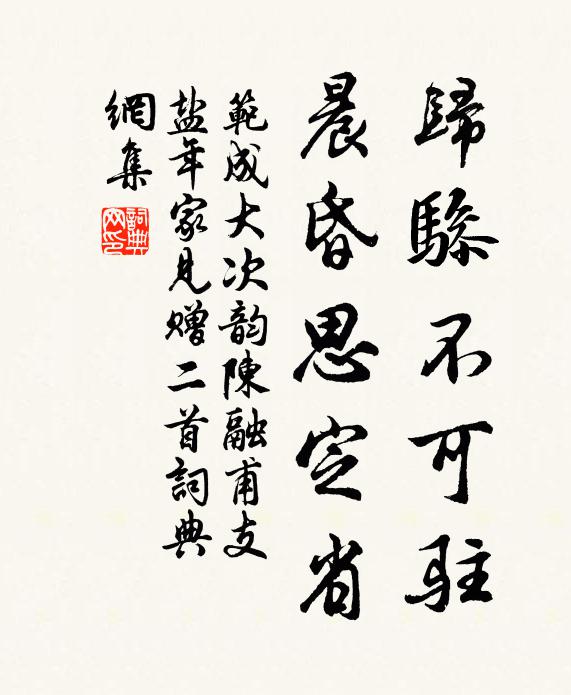 歸驂不可駐
晨昏思定省
範成大次韵陳融甫支
盐年家見赠二首詞典
網集
詞典
网印